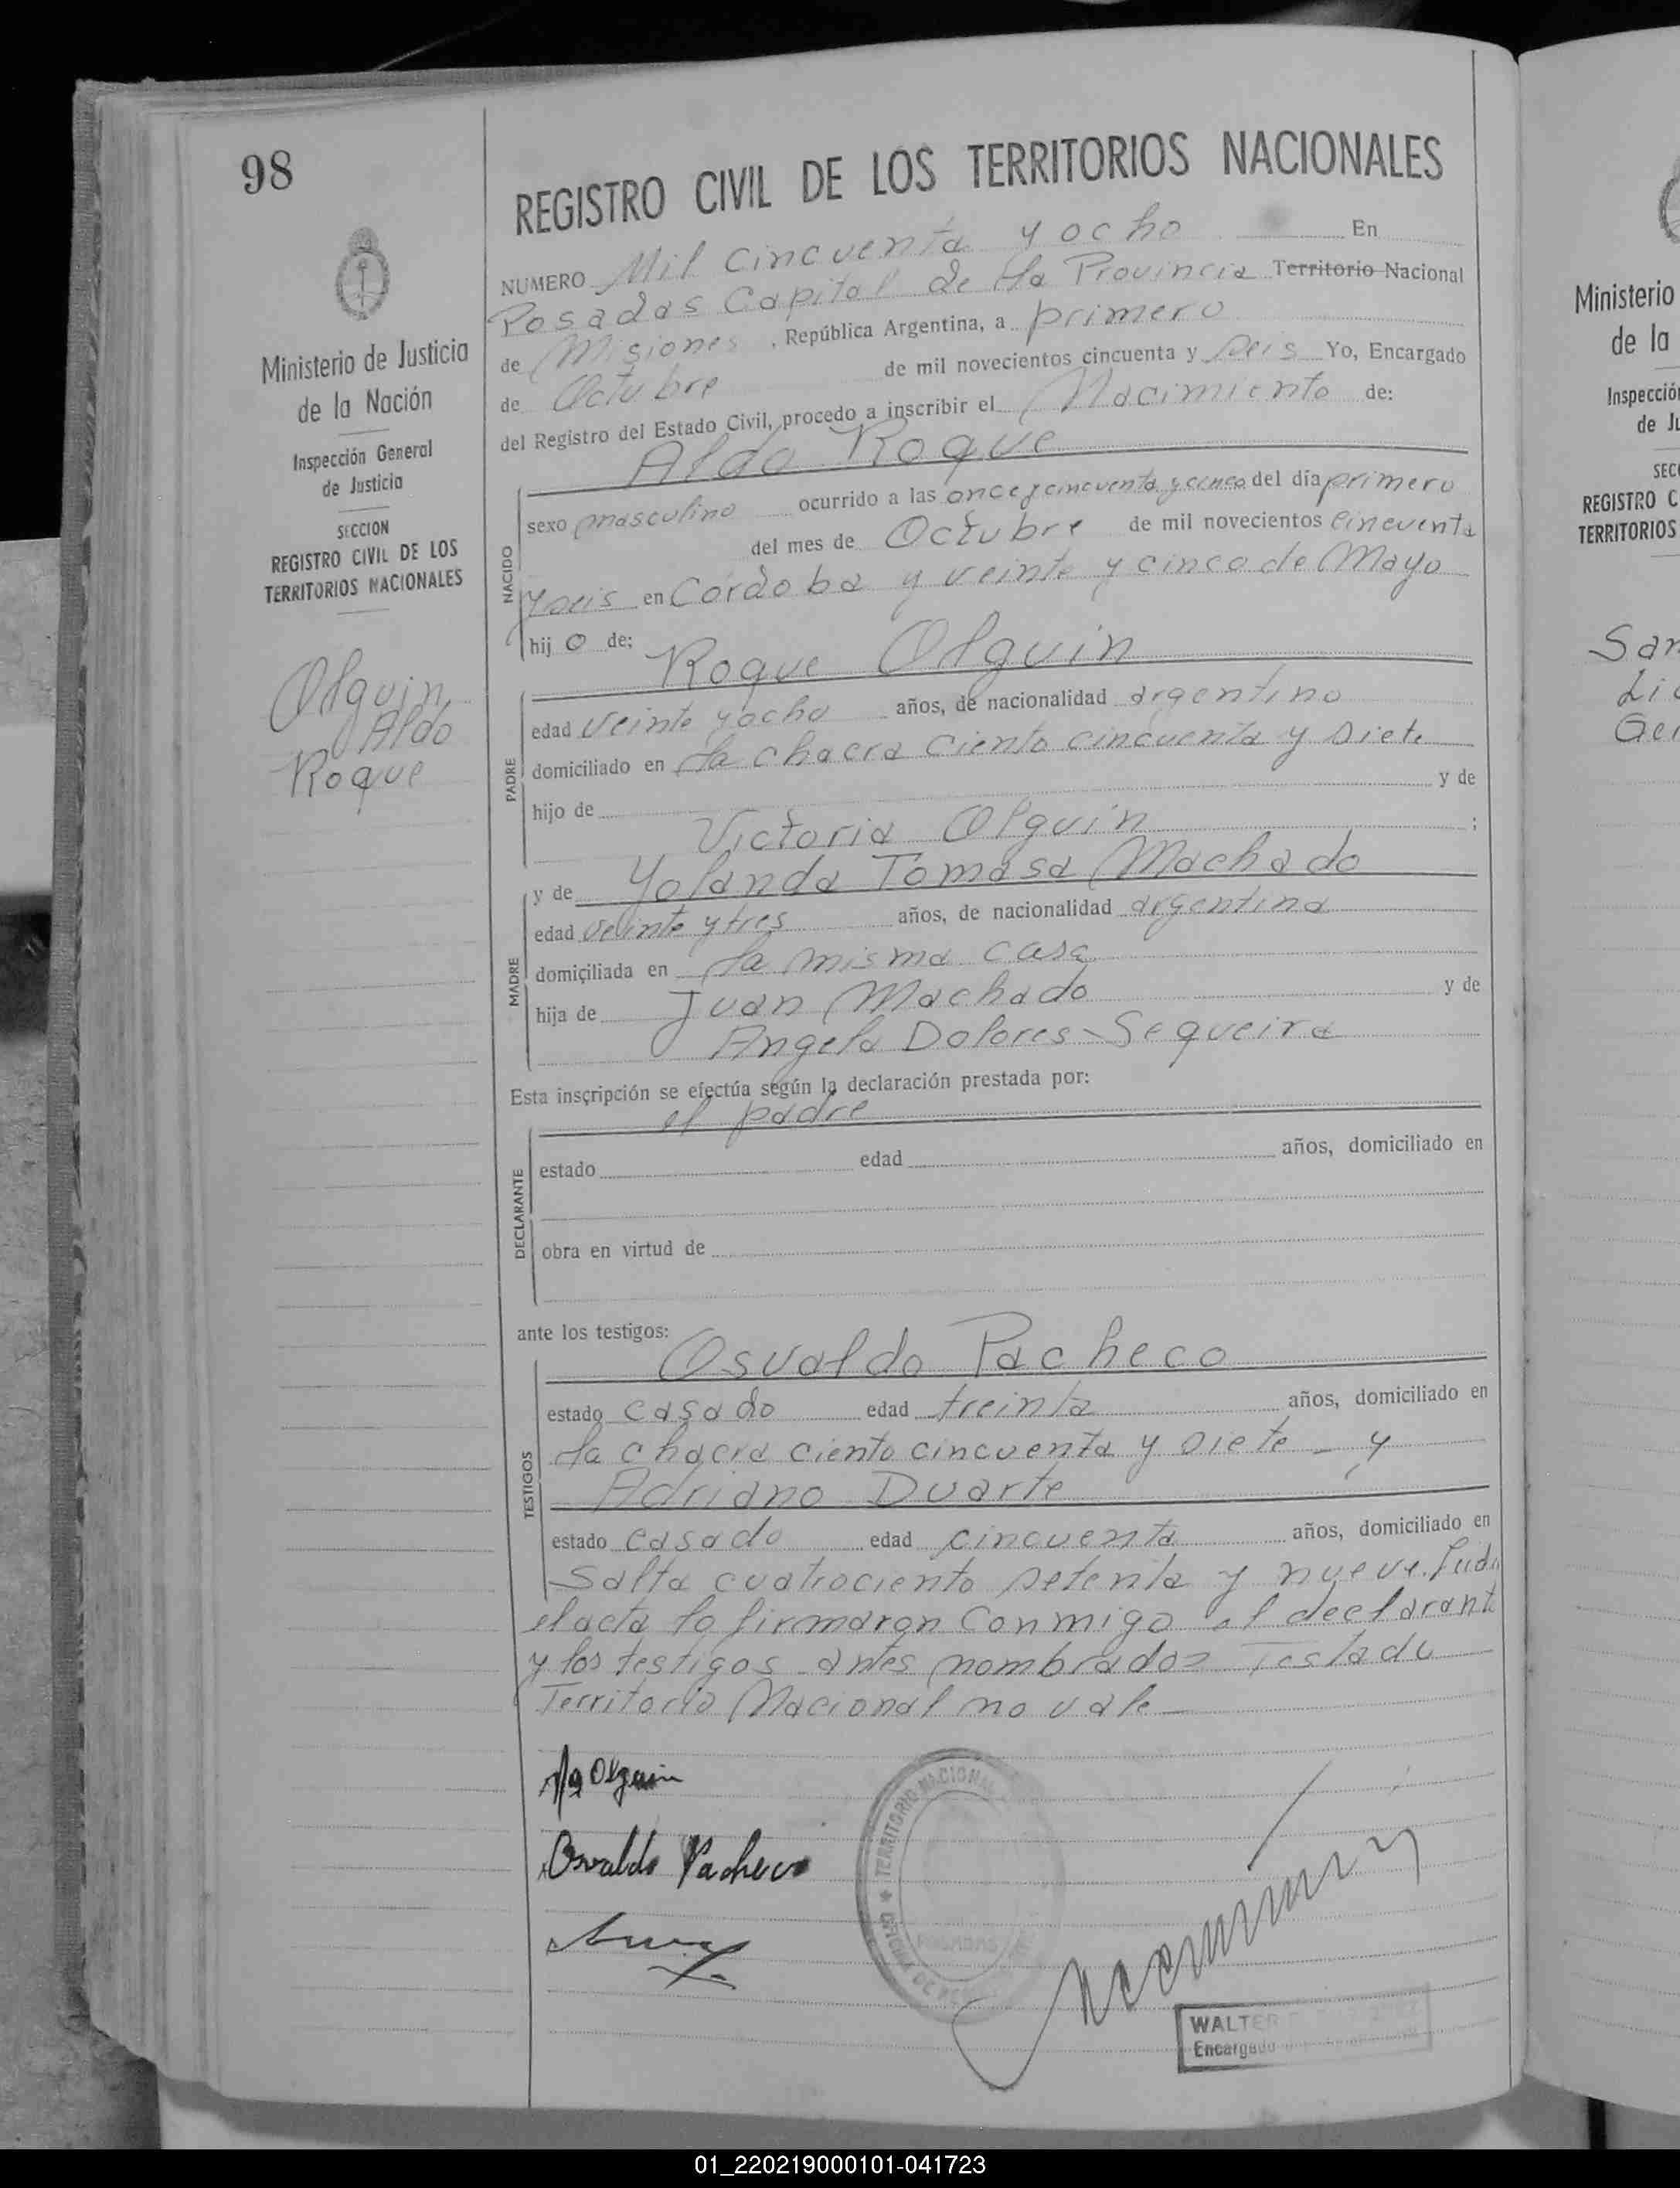 98
Ministerio de Justicia
de la Nación
Inspección General
de Justicia
SECCION
REGISTRO CIVIL DE LOS
TERRITORIOS NACIONALES
Olguin
Aldo
Roque
REGISTRO CIVIL DE LOS TERRITORIOS NACIONALES
NUMERO Mil cincuenta y ocho En
Posadas Capital de la Provincia Territorio Nacional
de Misiones, República Argentina, a primero
de Octubre de mil novecientos cincuenta y seis Yo, Encargado
del Registro del Estado Civil, procedo a inscribir el Nacimiento de:
Aldo Roque
NACIDO
sexo masculino ocurrido a las once y cincuenta y cinco del día primero
del mes de Octubre de mil novecientos cincuenta
y seis en Córdoba y veinte y cinco de Mayo
hij o de:
Roque Olguin
PADRE
edad veinte y ocho años, de nacionalidad argentino
domiciliado en la chacra ciento cincuenta y siete
hijo de y de
Victoria Olguin ;
MADRE
y de Yolanda Tomasa Machado
edad veinte y tres años, de nacionalidad argentina
domiciliada en la misma casa
hija de Juan Machado y de
Angela Dolores Sequeira
Esta inscripción se efectúa según la declaración prestada por:
el padre
DECLARANTE
estado edad años, domiciliado en
obra en virtud de
ante los testigos:
Osvaldo Pacheco
TESTIGOS
estado casado edad treinta años, domiciliado en
la chacra ciento cincuenta y siete - y
Adriano Duarte
estado casado edad cincuenta años, domiciliado en
Salta cuatrociento setenta y nueve.
el acta la firmaron conmigo el declarant
y los testigos antes nombrados Testado
Territorio Nacional no vale
Olguin
Osvaldo Pacheco
TERRITORIO NACIONAL
POSADAS
WALTER
Encargado
Ministerio
de la
Inspección
de Ju
SEC
REGISTRO C
TERRITORIOS
San
Li
Ger
01_220219000101-041723